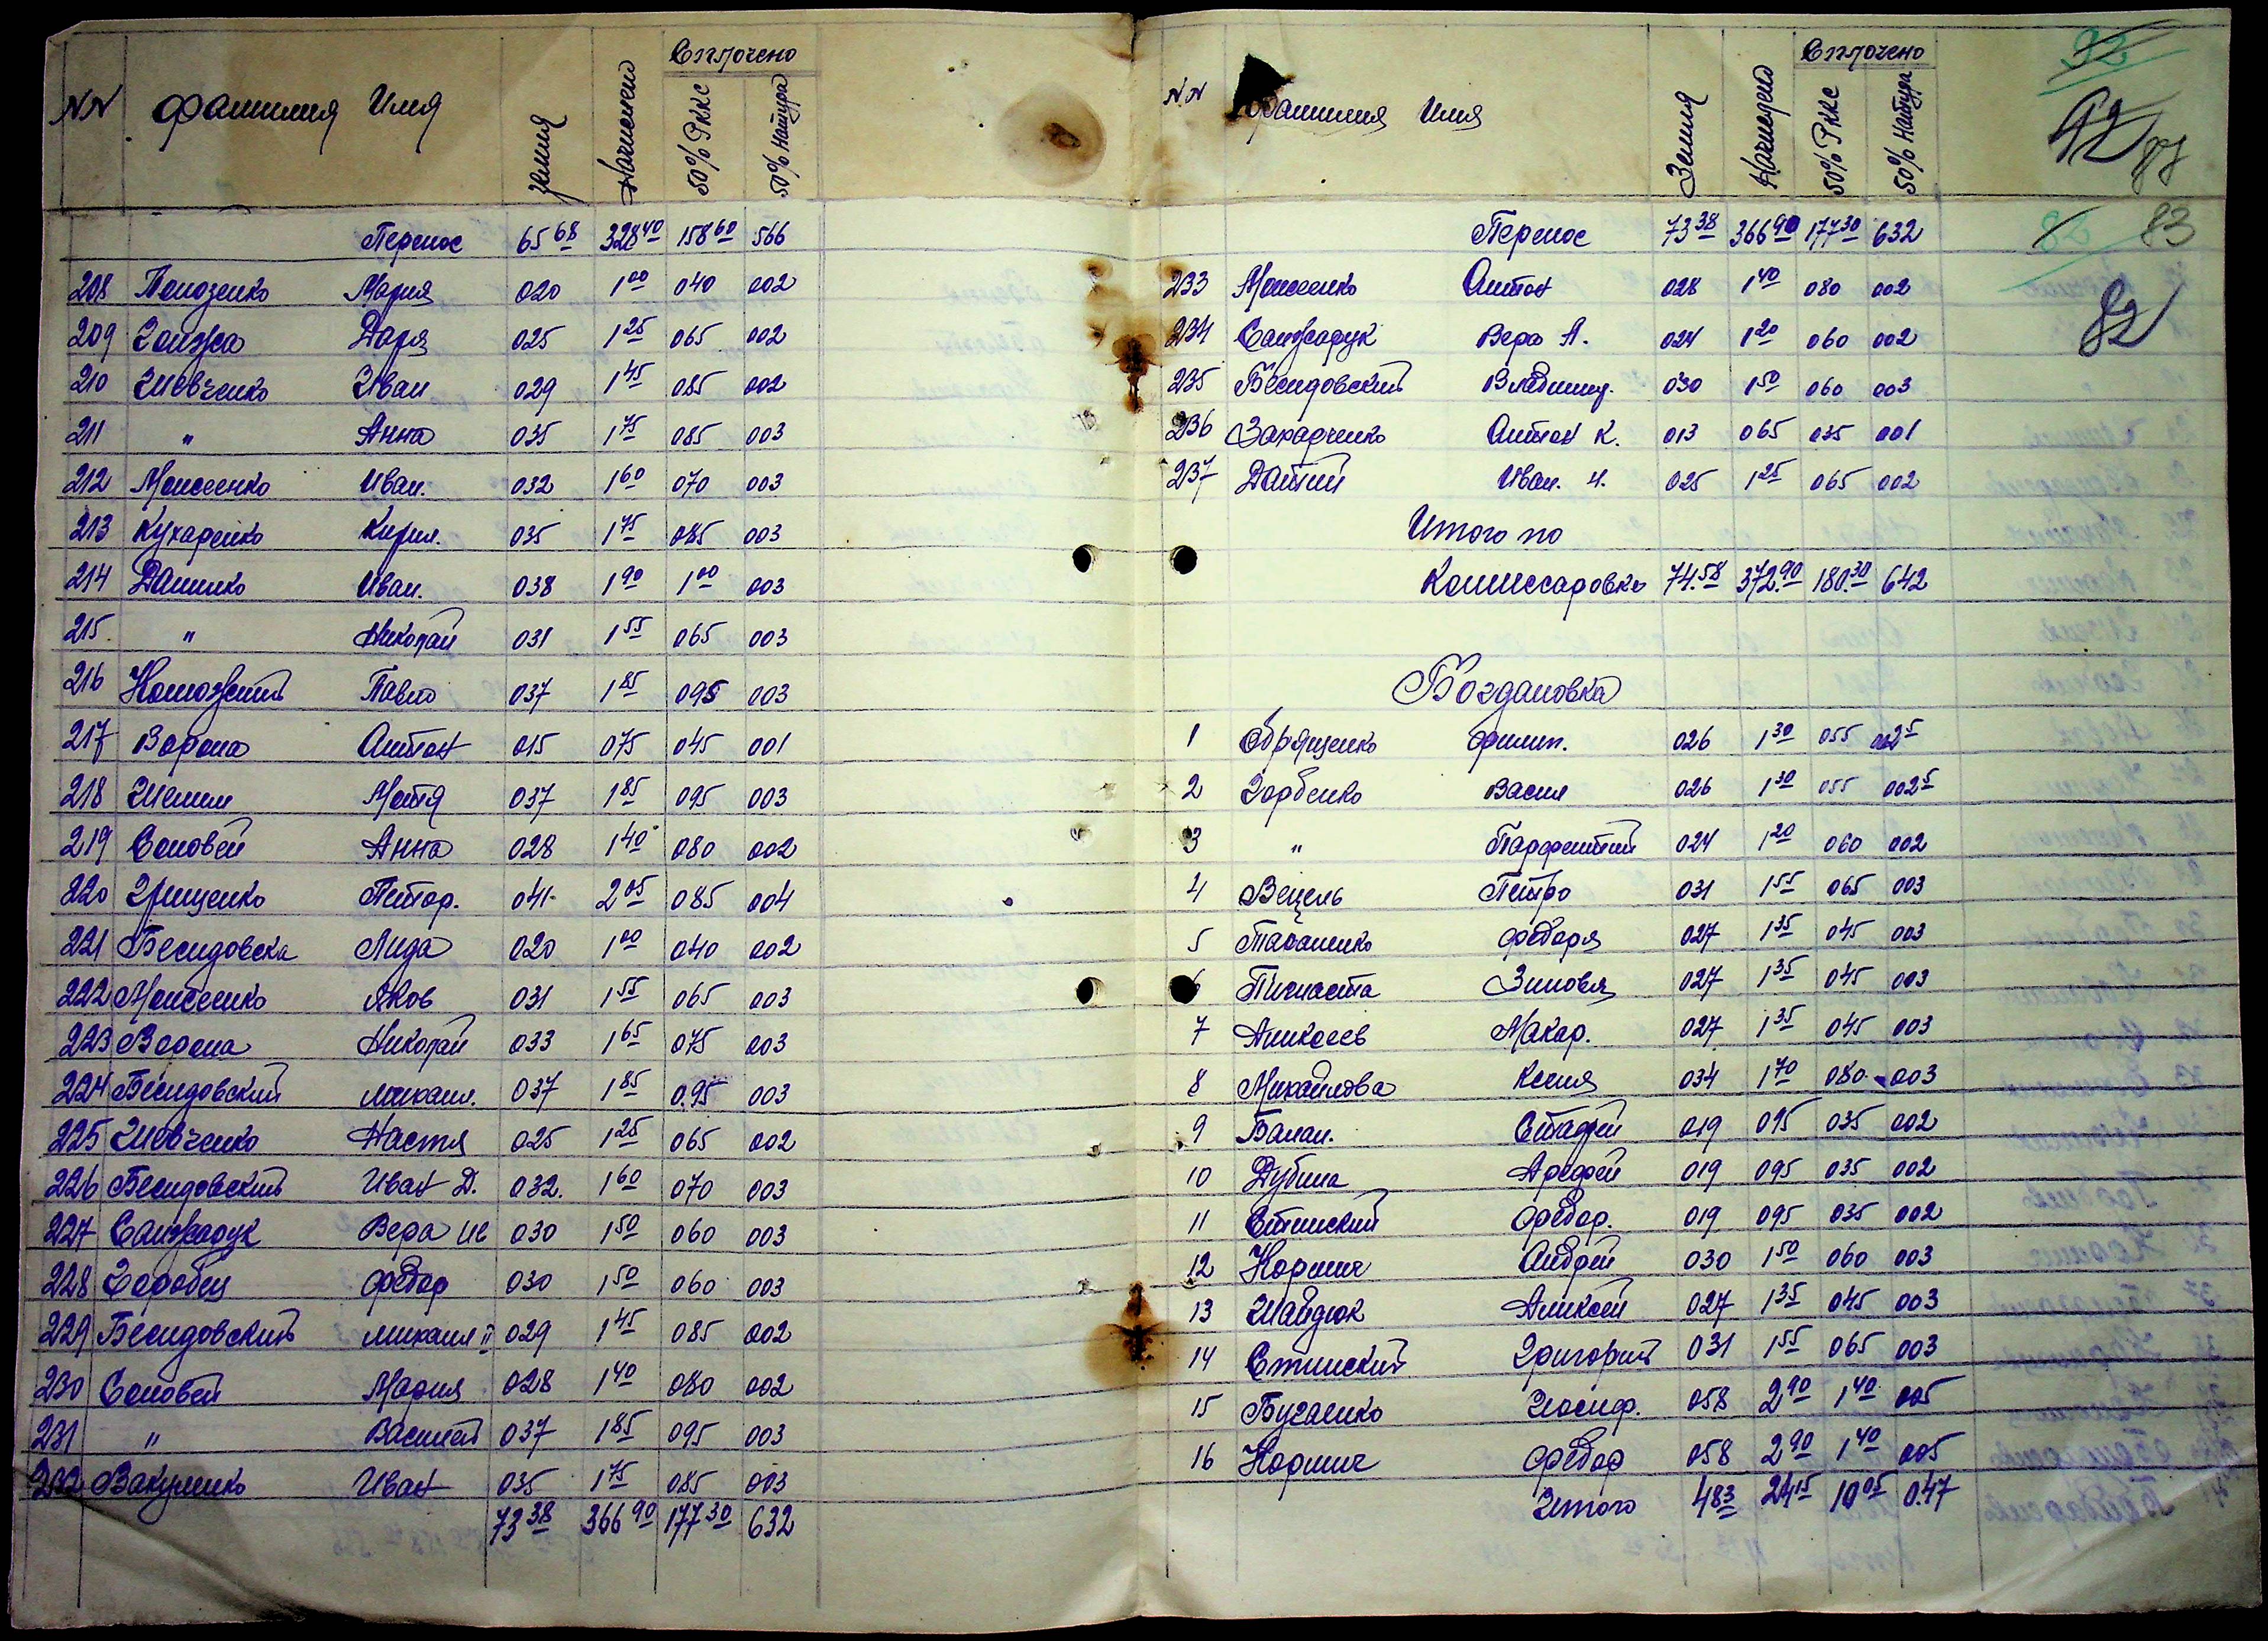 NN Фамилия Имя Земля Начислено Сплочено 50% РККС 50% Натура
Перенос 65 68 328 40 158 60 566
208 Мария 020 1 00 040 002
209 Даря 025 1 25 065 002
210 Шевченко Иван 029 1 45 085 002
211 " Анна 035 1 75 085 003
212 Моисеенко Иван. 032 1 60 070 003
213 Кухаренко Кирил. 035 1 75 085 003
214 Данилко Иван. 038 1 90 1 00 003
215. " Николай 031 1 55 065 003
216 Павло 037 1 85 095 003
217 Ворона Антон 015 075 045 001
218 Мотя 037 1 85 095 003
219 Соловей Анна 028 1 40 080 002
220 Грищенко 041 2 05 085 004
221 Бесидовска Лида 020 1 00 040 002
222 Моисеенко Яков 031 1 55 065 003
223 Ворона Николай 033 1 65 075 003
224 Бесидовский михаил. 037 1 85 0.95 003
225 Шевченко Настя 025 1 25 065 002
226 Бесидовский Иван Д. 032. 1 60 070 003
227 Сандрадук Вера 030 1 50 060 003
228 Горобец Федор 030 1 50 060 003
229 Бесидовский михаил II 029 1 45 085 002
230 Соловей Мария 028 1 40 080 002
231 " Василий 037 1 85 095 003
232 Вакуленко Иван 035 1 75 085 003
73 38 366 90 177 30 632
N.N Фамилия Имя Земля Начислено Сплочено 50% РККС 50% Натура
92
92 87
82 83
82
Перенос 73 38 366 90 177 30 632
233 Моисеенко Антон 028 1 40 080 002
234 Вера А. 024 1 20 060 002
235 Бесидовский Владимир. 030 1 50 060 003
236 Захарченко Антон К. 013 065 035 001
237 Иван. И. 025 1 25 065 002
Итого по
Комиссаровке 74.58 372.90 180.30 642
Богдановка
1 Абрященко Филип. 026 1 30 055 002 5
2 Горбенко Васил 026 1 30 055 002 5
3 " Парфентий 024 1 20 060 002
4 Вецель Петро 031 1 55 065 003
5 Федоря 027 1 35 045 003
6 Зиновя 027 1 35 045 003
7 Аликсеев Макар. 027 1 35 045 003
8 Михайлова Ксения 034 1 70 080 003
9 Балан. Евтафей 019 095 035 002
10 Дубина Арефей 019 095 035 002
11 Федор. 019 095 035 002
12 Кормич Андрей 030 1 50 060 003
13 Шайдюк Аликсей 027 1 35 045 003
14 Стинский Григорий 031 1 55 065 003
15 Бугаенко Иосиф. 058 2 90 1 40 005
16 Кормич Федор 058 2 90 1 40 005
Итого 4 83 24 15 10 05 0.47